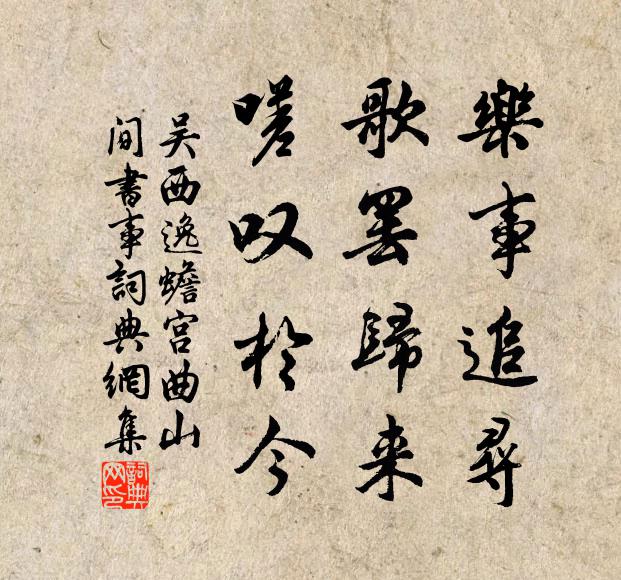 樂事追尋
歌罢歸来
嗟叹於今
吴西逸蟾宫曲山
间書事詞典網集
詞典网印